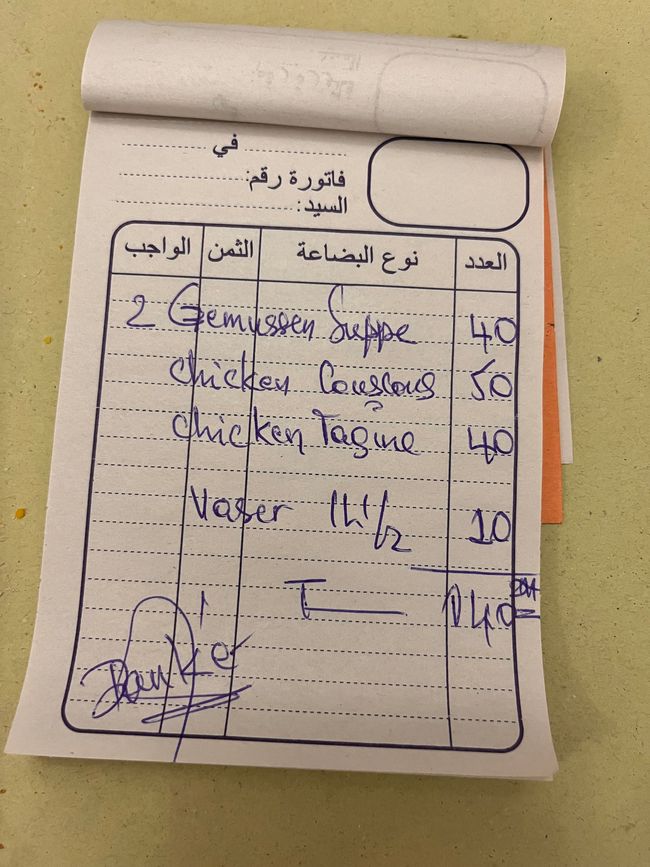 في
فاتورة رقم:
السيد:
العدد نوع البضاعة الثمن الواجب
2 Gemussen Suppe 40
chicken Couscous 50
chicken Tagine 40
Vaser 1L 1/2 10
T 140 DH
Danke